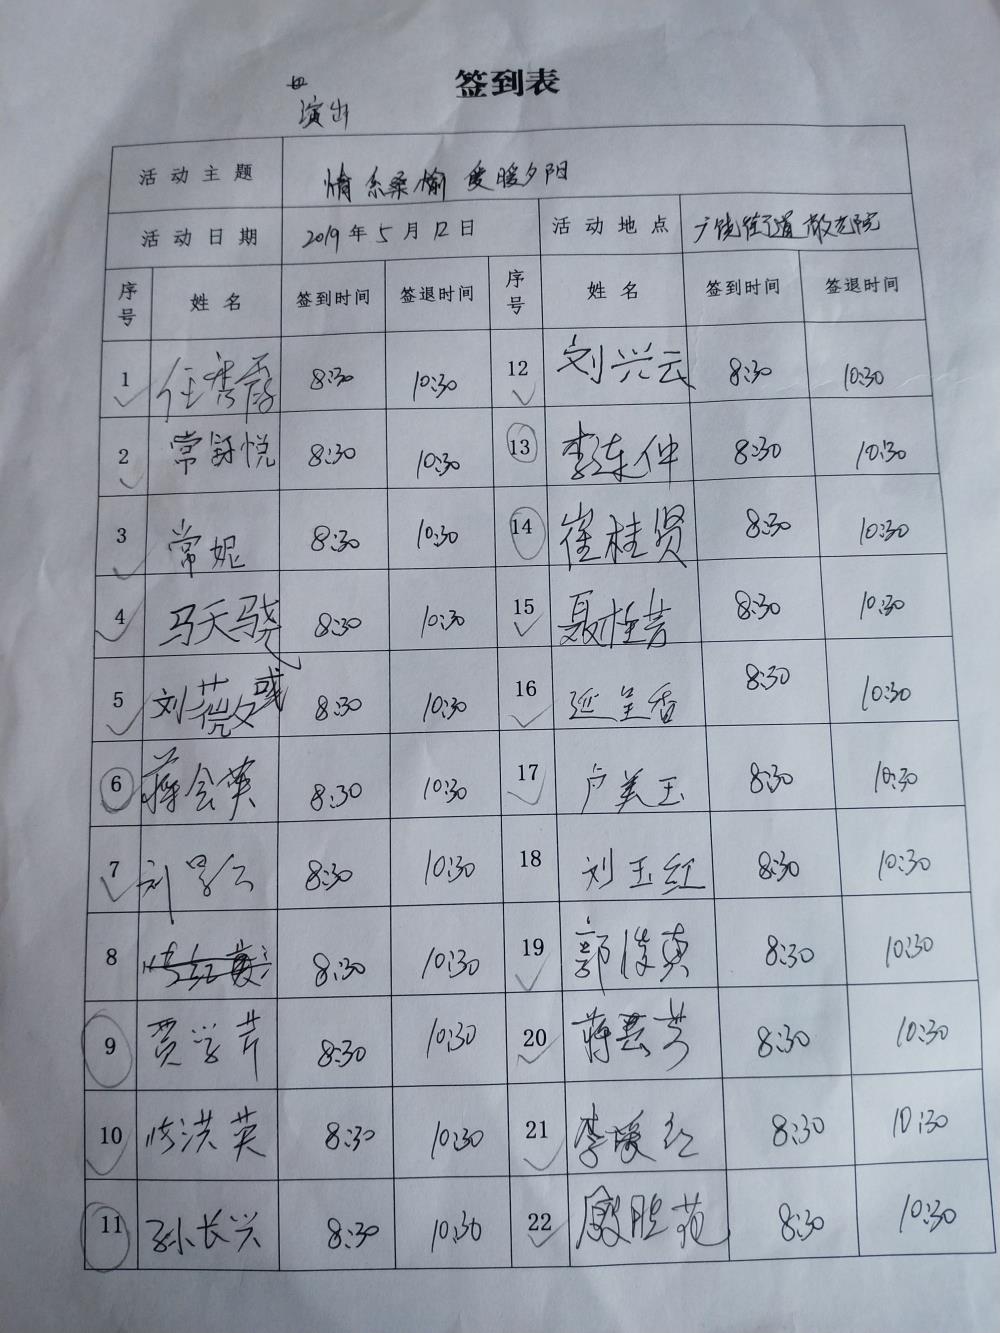 签到表
演出
活动主题 情系桑榆 爱暖夕阳
活动日期 2019年5月12日 活动地点 广饶街道敬老院
序号 姓名 签到时间 签退时间 序号 姓名 签到时间 签退时间
1 任秀霞 8:30 10:30 12 刘兴云 8:30 10:30
2 常钰悦 8:30 10:30 13 李东仲 8:30 10:30
3 常妮 8:30 10:30 14 崔桂贤 8:30 10:30
4 马天骁 8:30 10:30 15 聂桂芳 8:30 10:30
5 刘薇 8:30 10:30 16 延呈香 8:30 10:30
6 蒋会英 8:30 10:30 17 卢美玉 8:30 10:30
7 刘 8:30 10:30 18 刘玉红 8:30 10:30
8 8:30 10:30 19 郭俊英 8:30 10:30
9 贾学芹 8:30 10:30 20 蒋芸芳 8:30 10:30
10 洪英 8:30 10:30 21 李媛红 8:30 10:30
11 孙长兴 8:30 10:30 22 殷胜苑 8:30 10:30